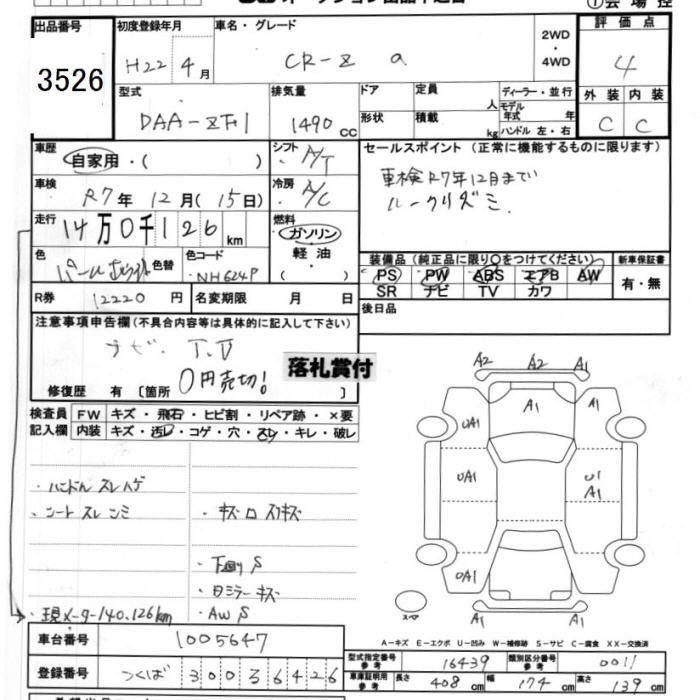 ①会場控
出品番号
3526
初度登録年月
H22年4月
車名・グレード
CR-Z α
2WD
・
4WD
評価点
4
外装 内装
C C
型式
DAA-ZF1
排気量
1490cc
ドア
形状
定員 人
積載 kg
ディーラー・並行
モデル
年式 年
ハンドル 左・右
車歴
自家用・( )
シフト
A/T
車検
R7年12月(15日)
冷房
A/C
走行
14万0千126km
燃料
ガソリン
軽油
・
( )
色
色替
色コード
NH624P
R券 12220円
名変期限 月 日
セールスポイント(正常に機能するものに限ります)
車検R7年12月まで
装備品(純正品に限り○をつけてください)
PS PW ABS エアB AW
SR ナビ TV カワ
新車保証書
有・無
後日品
注意事項申告欄(不具合内容等は具体的に記入して下さい)
ナビ.T.V
0円売切!
落札賞付
修復歴 有 [箇所 ]
検査員 FW キズ・飛石・ヒビ割・リペア跡・×要
記入欄 内装 キズ・汚レ・コゲ・穴・スレ・キレ・破レ
・ハンドル スレハゲ
・シート スレ シミ
・キズ ロ スリキズ
・下廻り S
・日ミラー キズ
・現メーター140.126km
・AW S
A2 A2 A1
A1 A1
UA1
UA1 U1
A1
UA1
A1 A1
スペア
A-キズ E-エクボ U-凹み W-補修跡 S-サビ C-腐食 XX-交換済
車台番号 1005647
登録番号 つくば 300 る 6426
型式指定番号
参考
16439
類別区分番号
参考
0011
車庫証明用
参考
長さ 408cm 幅 174cm 高さ 139cm